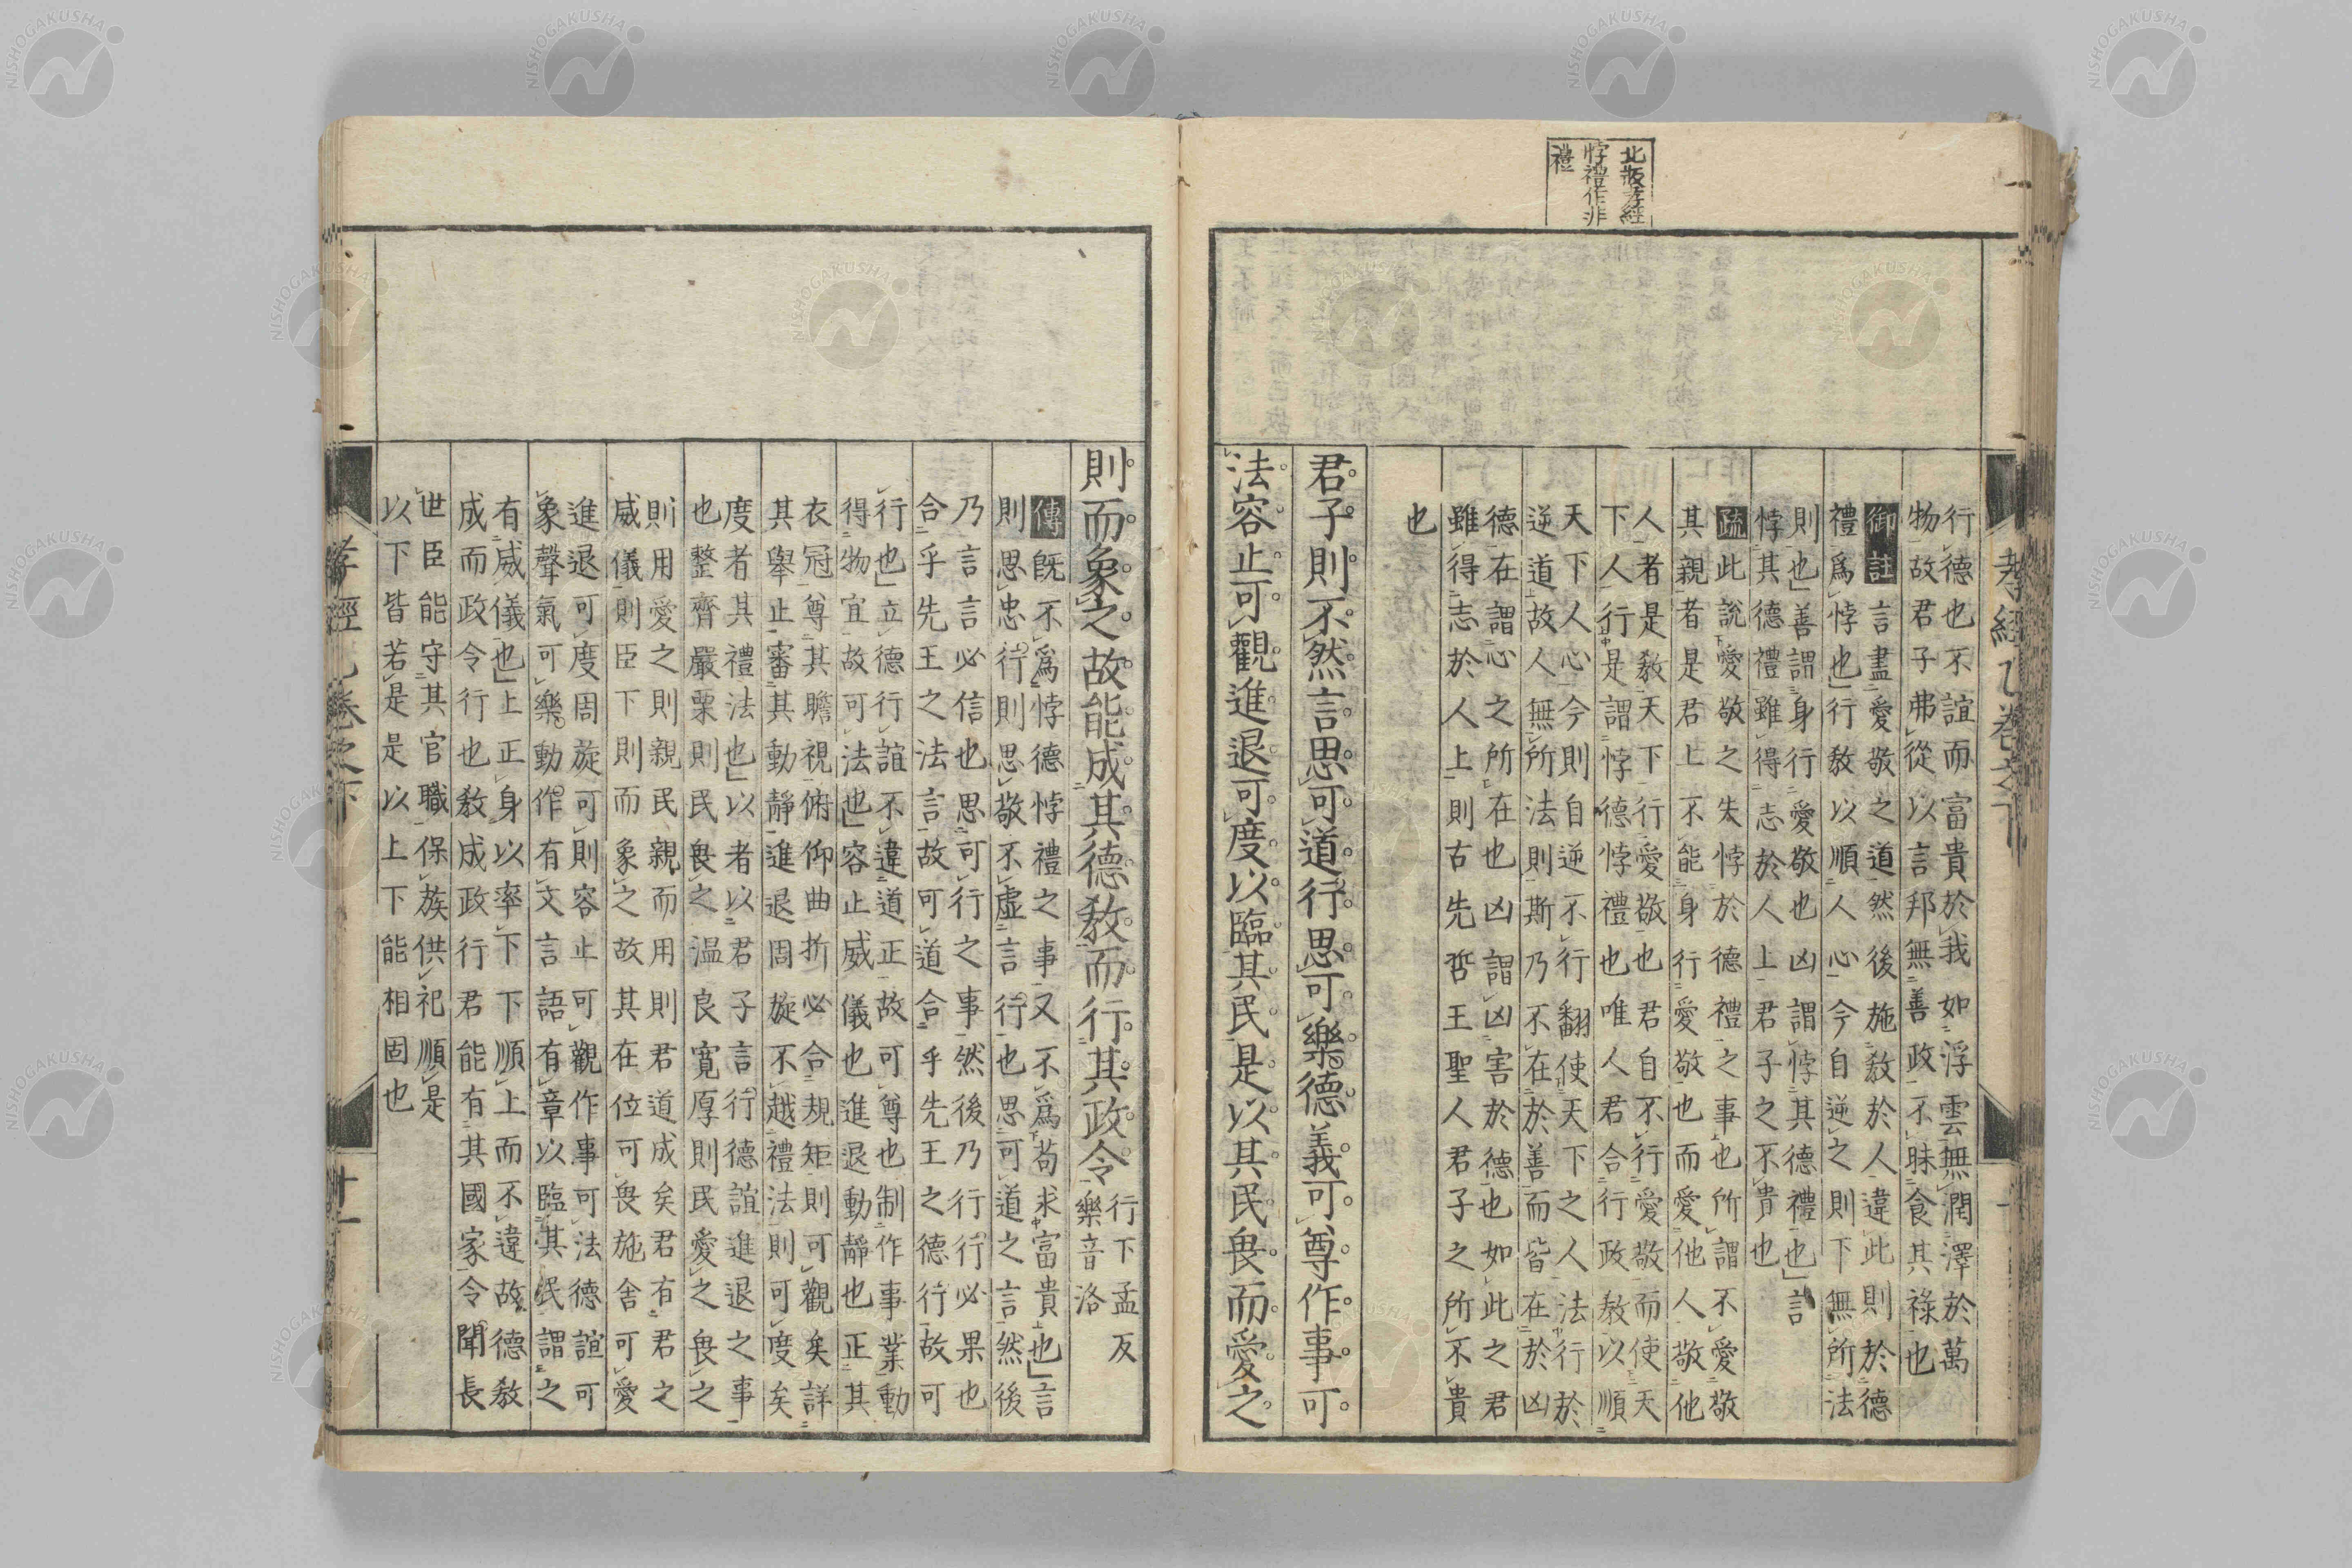 北版孝經
悖禮作非
禮
行德也不誼而富貴於我如浮雲無潤澤於萬
物故君子弗從以言邦無善政不昧食其祿也
御註言盡愛敬之道然後施敎於人違此則於德
禮爲悖也行敎以順人心今自逆之則下無所法
則也善謂身行愛敬也凶謂悖其德禮也言
悖其德禮雖得志於人上君子之不貴也
疏此說愛敬之失悖於德禮之事也所謂不愛敬
其親者是君上不能身行愛敬也而愛他人敬他
人者是敎天下行愛敬也君自不行愛敬而使天
下人行是謂悖德悖禮也唯人君合行政敎以順
天下人心今則自逆不行翻使天下之人法行於
逆道故人無所法則斯乃不在於善而皆在於凶
德在謂心之所在也凶謂凶害於德也如此之君
雖得志於人上則古先哲王聖人君子之所不貴
也
君子則不然言思可道行思可樂德義可尊作事可
法容止可觀進退可度以臨其民是以其民畏而愛之
則而象之故能成其德敎而行其政令
行下孟反
樂音洛
傳旣不爲悖德悖禮之事又不爲苟求富貴也言
則思忠行則思敬不虛言行也思可道之言然後
乃言言必信也思可行之事然後乃行行必果也
合乎先王之法言故可道合乎先王之德行故可
行也立德行誼不違道正故可尊也制作事業動
得物宜故可法也容止威儀也進退動靜也正其
衣冠尊其瞻視俯仰曲折必合規矩則可觀矣詳
其舉止審其動靜進退周旋不越禮法則可度矣
度者其禮法也以者以君子言行德誼進退之事
也整齊嚴栗則民畏之溫良寬厚則民愛之畏之
則用愛之則親民親而用則君道成矣君有君之
威儀則臣下則而象之故其在位可畏施舍可愛
進退可度周旋可則容止可觀作事可法德誼可
象聲氣可樂動作有文言語有章以臨其民謂之
有威儀也上正身以率下下順上而不違故德敎
成而政令行也敎成政行君能有其國家令聞長
世臣能守其官職保族供祀順是
以下皆若是是以上下能相固也
孝經
卷之下